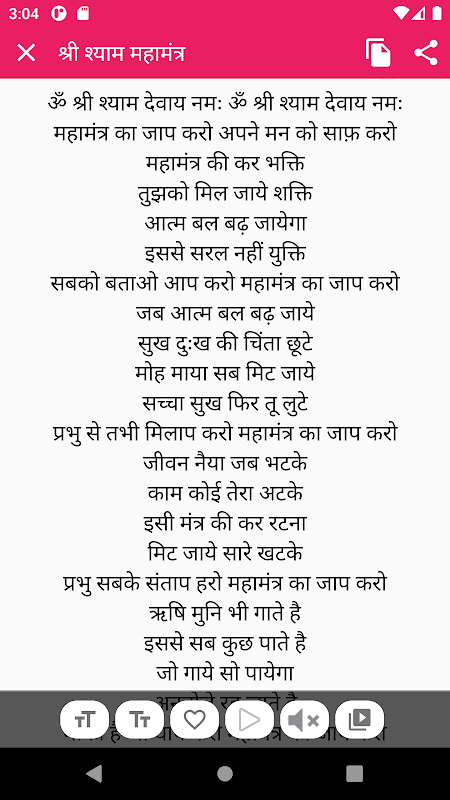 3:04
श्री श्याम महामंत्र
ॐ श्री श्याम देवाय नमः ॐ श्री श्याम देवाय नमः
महामंत्र का जाप करो अपने मन को साफ़ करो
महामंत्र की कर भक्ति
तुझको मिल जाये शक्ति
आत्म बल बढ़ जायेगा
इससे सरल नहीं युक्ति
सबको बताओ आप करो महामंत्र का जाप करो
जब आत्म बल बढ़ जाये
सुख दुःख की चिंता छूटे
मोह माया सब मिट जाये
सच्चा सुख फिर तू लुटे
प्रभु से तभी मिलाप करो महामंत्र का जाप करो
जीवन नैया जब भटके
काम कोई तेरा अटके
इसी मंत्र की कर रटना
मिट जाये सारे खटके
प्रभु सबके संताप हरो महामंत्र का जाप करो
ऋषि मुनि भी गाते है
इससे सब कुछ पाते है
जो गाये सो पायेगा